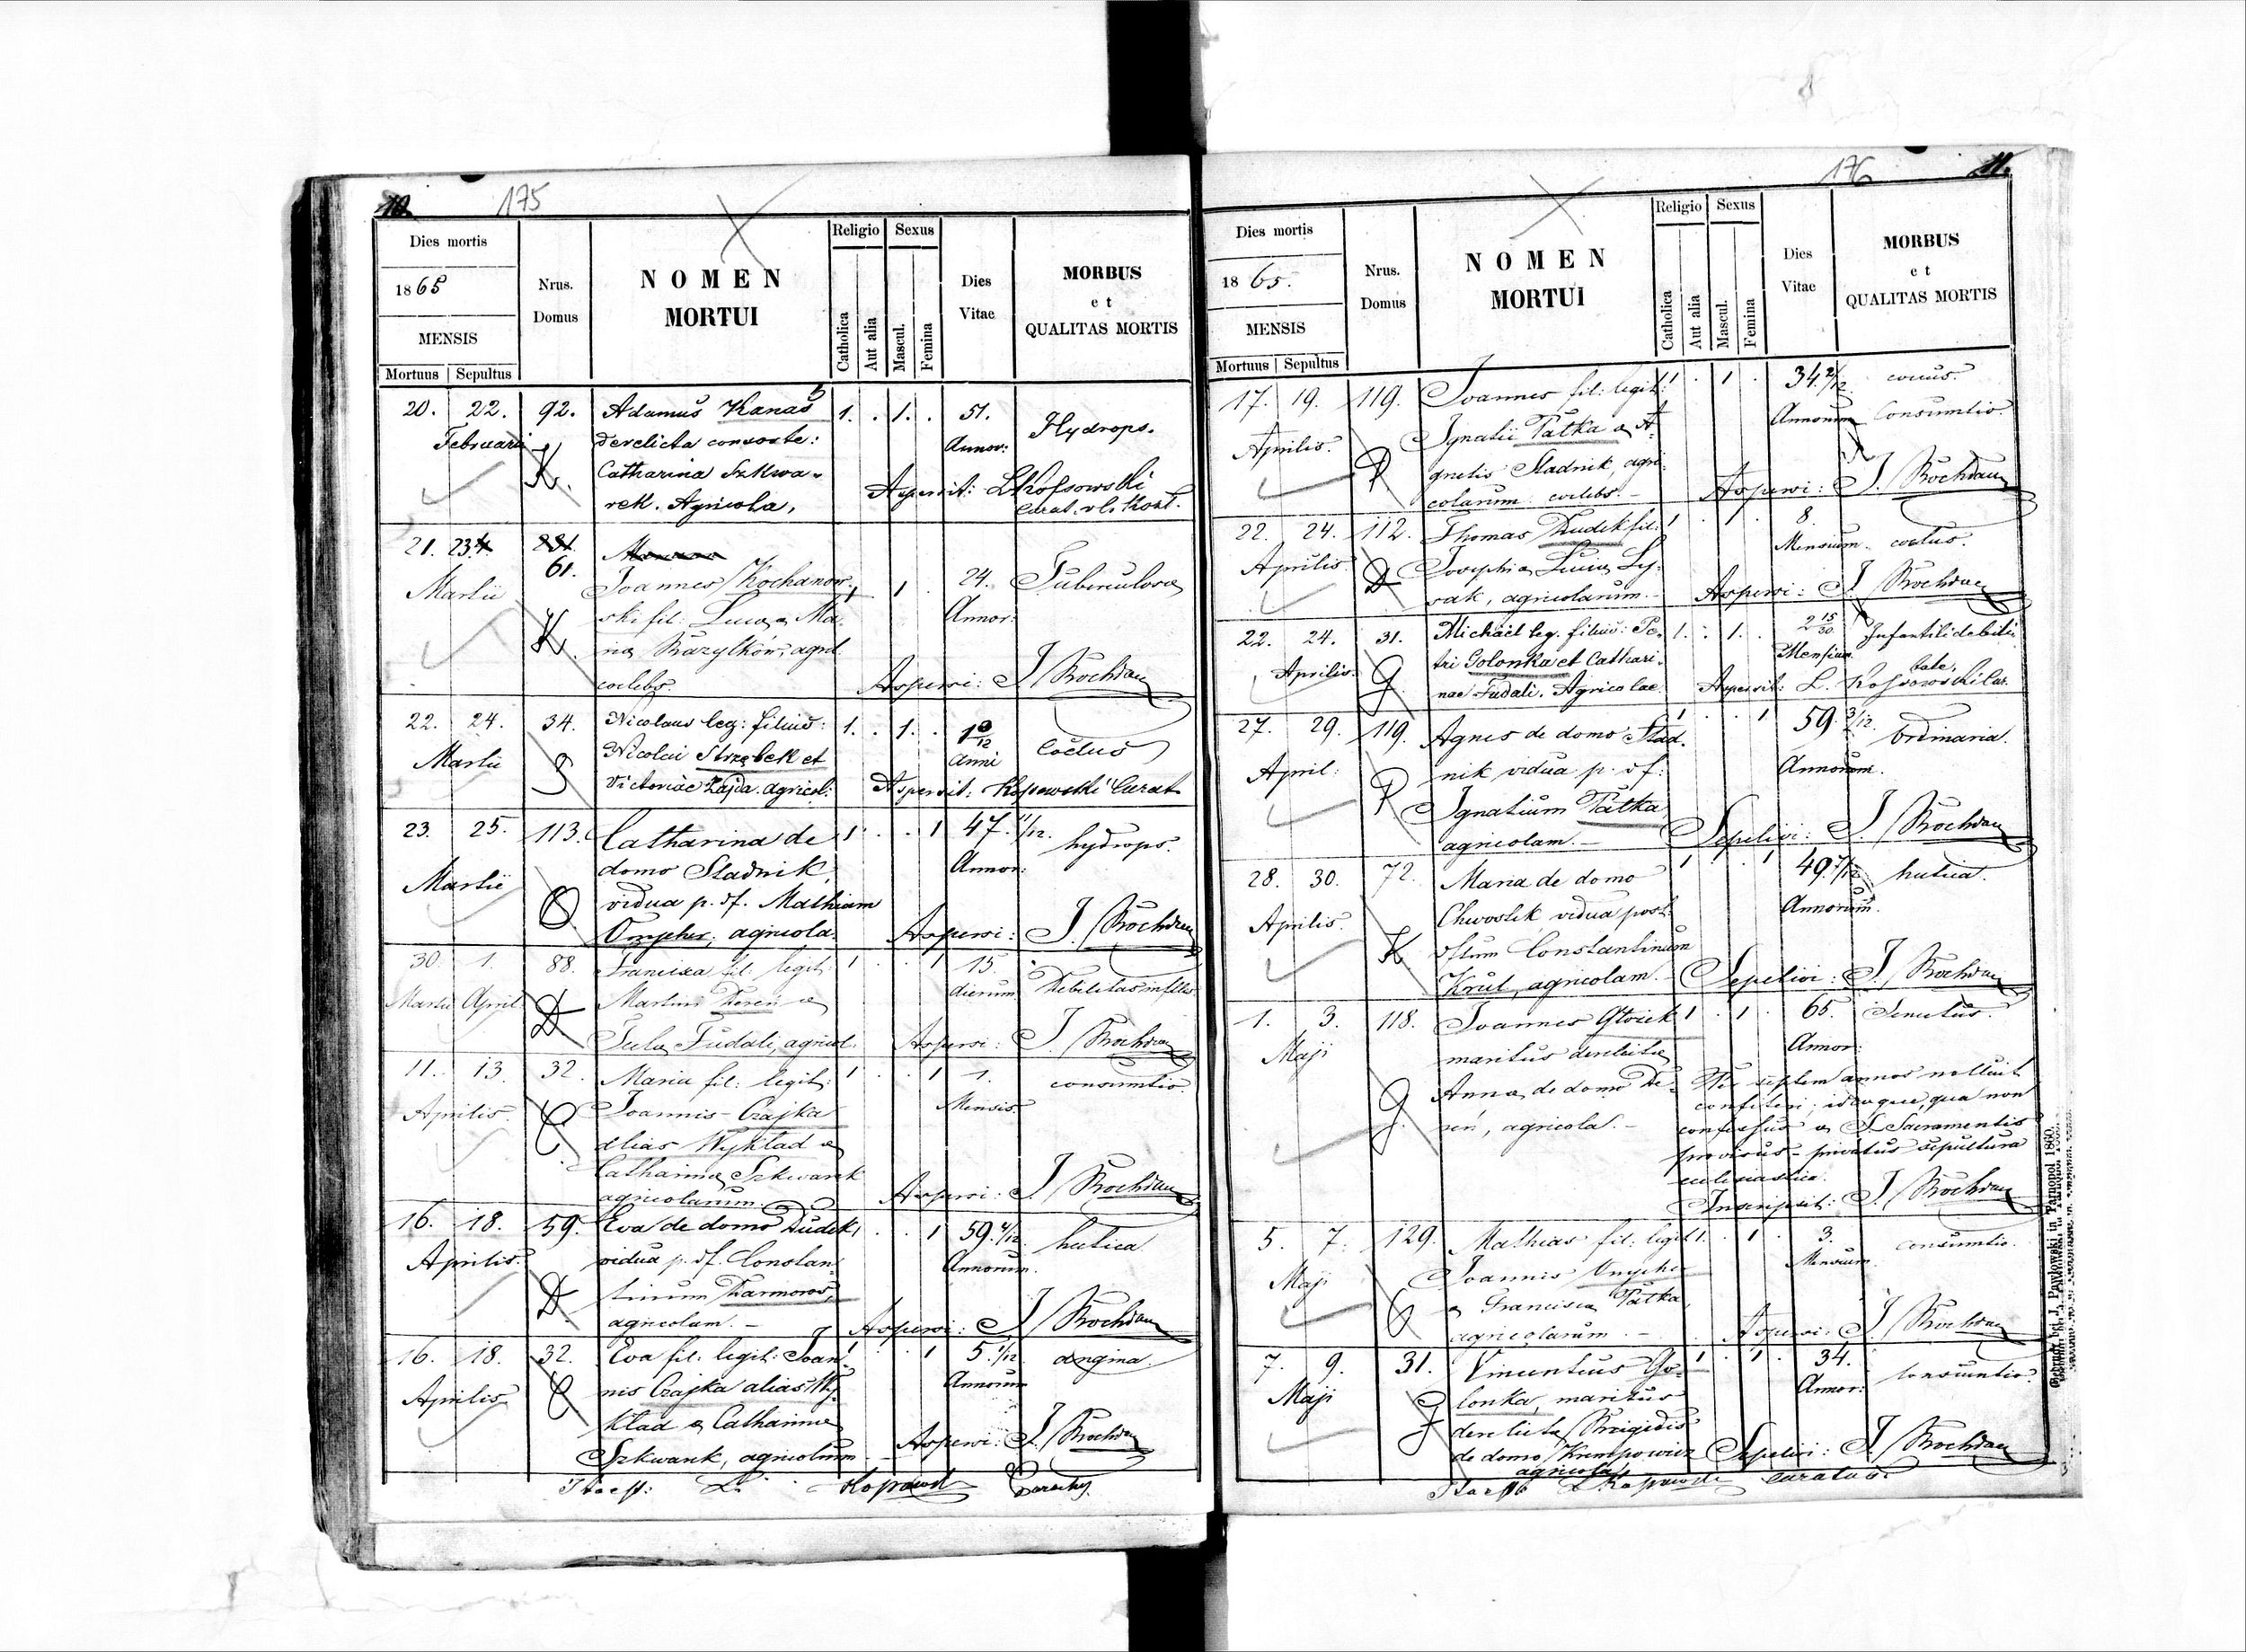 10.
175
Dies mortis
1865
MENSIS
Mortuus | Sepultus
Nrus.
Domus
NOMEN
MORTUI
Religio
Catholica
Aut alia
Sexus
Mascul.
Femina
Dies
Vitae
MORBUS
et
QUALITAS MORTIS
20. 22. 92. Adamus Kanas 1. . 1. . 51. Hydrops.
Februarii derelicta consorte: Annor:
K. Catharina Szkwa-
rek. Agricola, Aspersit: LKossowski
21. 23. 61.
Joannes Kochanow- 1 1 24. Tuberculosa
Martii ski fil: Luca & Ma- Annor:
K. ria Bazylków, agril.
coelebs. Aspersi: J Bochdan
22. 24. 34. Nicolaus leg: filius: 1. . 1. . Coctus
Martii Nicolai Strzębek et Anni
S Victoriae Zajda. agricol: Aspersit: Kossowski Curat
23. 25. 113. Catharina de 1 . . 1 47. 1/12. hydrops.
Martii domo Stadnik, Annor:
vidua p. df. Mathiam
agricola. Aspersi: J. Bochdan
30. 1. 88. Francisca fil. legit: 1 . . 1 15. Debilitas
Martii April Martini Dereń & dierum
D Fudali, agricol. Aspersi: J Bochdan
11. 13. 32. Maria fil: legit: 1 . . 1 1. consumtio.
Aprilis. Joannis Czajka Mensis
C alias Wykład &
Catharina Szkwarek
agricolarum. Aspersi: J Bochdan
16. 18. 59. Eva de domo Dudek, . . 1 hectica
Aprilis. vidua p. df. Constan- Annorum.
D. tinum
agricolam. Aspersi: J Bochdan
16. 18. 32. Eva fil: legit: Joan- 1 . . 1 5. 1/12 angina.
Aprilis nis Czajka alias Wy- Annorum
C kład & Catharina
Szkwarek, agricolarum Aspersi: J. Bochdan
176 11.
Dies mortis
1865.
MENSIS
Mortuus | Sepultus
Nrus.
Domus
NOMEN
MORTUI
Religio
Catholica
Aut alia
Sexus
Mascul.
Femina
Dies
Vitae
MORBUS
et
QUALITAS MORTIS
17. 19. 119. Joannes fil: legit: 1 . 1 . 34. 2/12
Aprilis. Ignatii Patka & A- Annorum Consumtio.
P gnetis Stadnik, agri-
colarum coelebs. - Aspersi: J. Bochdan
22. 24. 112. Thomas Dudek fil: 1 . 1 . 8.
Aprilis Josephi & Lucia Ly- Mensium. coctus.
D sak, agricolarum. - Aspersi: J. Bochdan
22. 24. 31. Michael leg. filius: Pe- 1. . 1. 2 15/30 Infantili debili-
Aprilis. tri Golonka et Cathari- Mensium. tate,
G. nae Fudali. Agricolae. Aspersit: L. Kossowski Cur.
27. 29. 119. Agnes de domo Stad- 1 . . 1 59. 3/12. ordinaria.
April: nik vidua p. df: Annorum.
P Ignatium Patka
agricolam. - Sepelivi: J. Bochdan
28. 30. 72. Maria de domo 1 . . 1 hectica.
Aprilis. Chwostek vidua post. Annorum.
K Constantinum
Król, agricolam. - Sepelivi: J Bochdan
1. 3. 118. Joannes 1 . 1 . 65. Senectus.
Maji maritus derelictae Annor:
G. Anna de domo De- Per septem annos noluit
reń, agricola. - confiteri; ideoque, qua non
confessus & S. Sacramentis
provisus - privatus sepultura
ecclesiastica.
Inscripsit: J Bochdan
5. 7. 129. Mathias fil: legit 1. . 1 . 3. consumtio.
Maji Joannis Mensium
& Francisca Patka,
agricolarum. - Aspersi: J Bochdan
7. 9. 31. Vincentius Go- 1 . 1 . 34. consumtio.
Maji lonka, maritus Annor:
G derelicta Brigidis
de domo Krempowicz Sepelivi: J. Bochdan
agricola
Gedruckt bei J. Pawlowski in Tarnopol 1860.